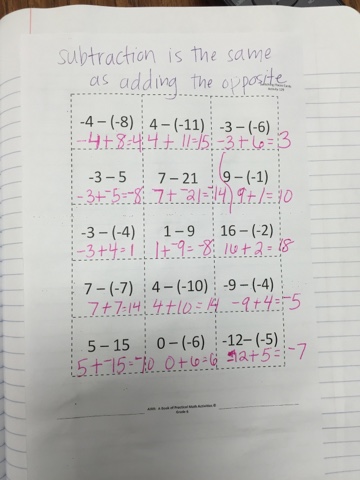 subtraction is the same
as adding the opposite
-4 – (-8) 4 – (-11) -3 – (-6)
-4+8=4 4+11=15 -3+6=3
-3 – 5 7 – 21 9 – (-1)
-3+-5=-8 7+-21=-14 9+1=10
-3 – (-4) 1 – 9 16 – (-2)
-3+4=1 1+-9=-8 16+2=18
7 – (-7) 4 – (-10) -9 – (-4)
7+7=14 4+10=14 -9+4=-5
5 – 15 0 – (-6) -12– (-5)
5+-15=-10 0+6=6 -12+5=-7
Grade 6